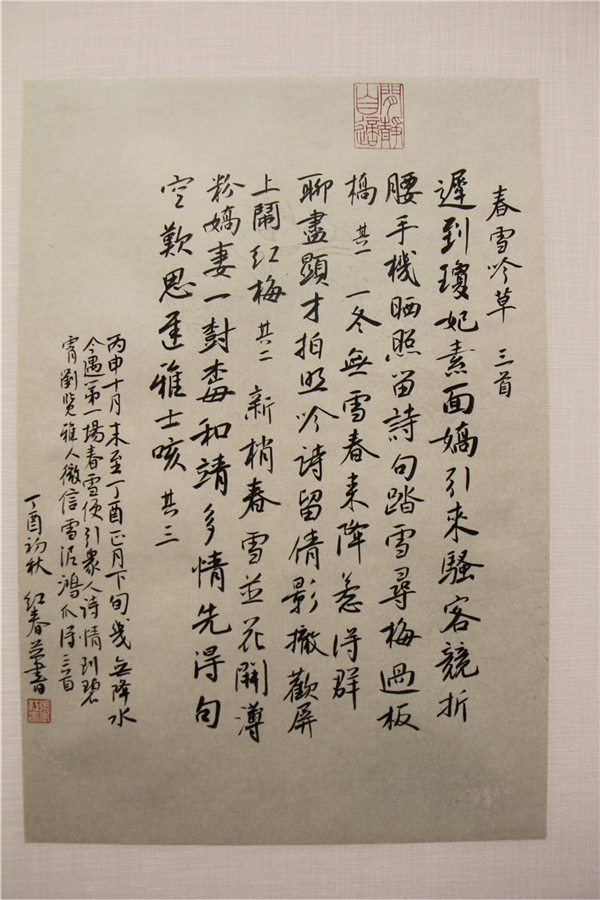 閒靜自適
春雪吟草 三首
遲到瓊妃素面嬌引來騷客競折
腰手機晒照留詩句踏雪尋梅過板
橋 其一 一冬無雪春來降惹得群
聊盡顯才拍照吟詩留倩影撤歡屏
上鬧紅梅 其二 新梢春雪並花開薄
粉嬌妻一對梅和靖多情先得句
空歎思遲雅士咳 其三
丙申十月末至丁酉正月下旬幾無降水
今遇第一場春雪便引衆人詩情到碧
霄劉覽雅人微信雪泥鴻爪得三首
丁酉初秋 紅春并書